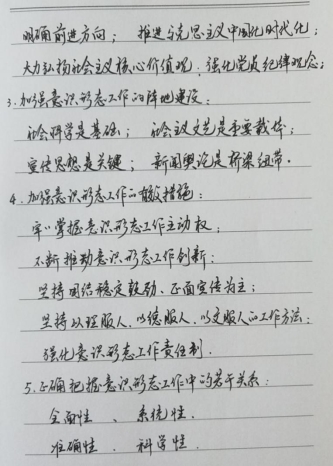 明确前进方向；推进马克思主义中国化时代化；
大力弘扬社会主义核心价值观；强化党员纪律观念；
3.加强意识形态工作的阵地建设：
社会科学是基础；社会主义文艺是重要载体；
宣传思想是关键；新闻舆论是桥梁纽带。
4.加强意识形态工作的有效措施：
牢牢掌握意识形态工作主动权；
不断推动意识形态工作创新；
坚持团结稳定鼓劲、正面宣传为主；
坚持以理服人，以德服人，以文服人的工作方法；
强化意识形态工作责任制。
5.正确把握意识形态工作中的若干关系：
全面性、系统性、
准确性、科学性。